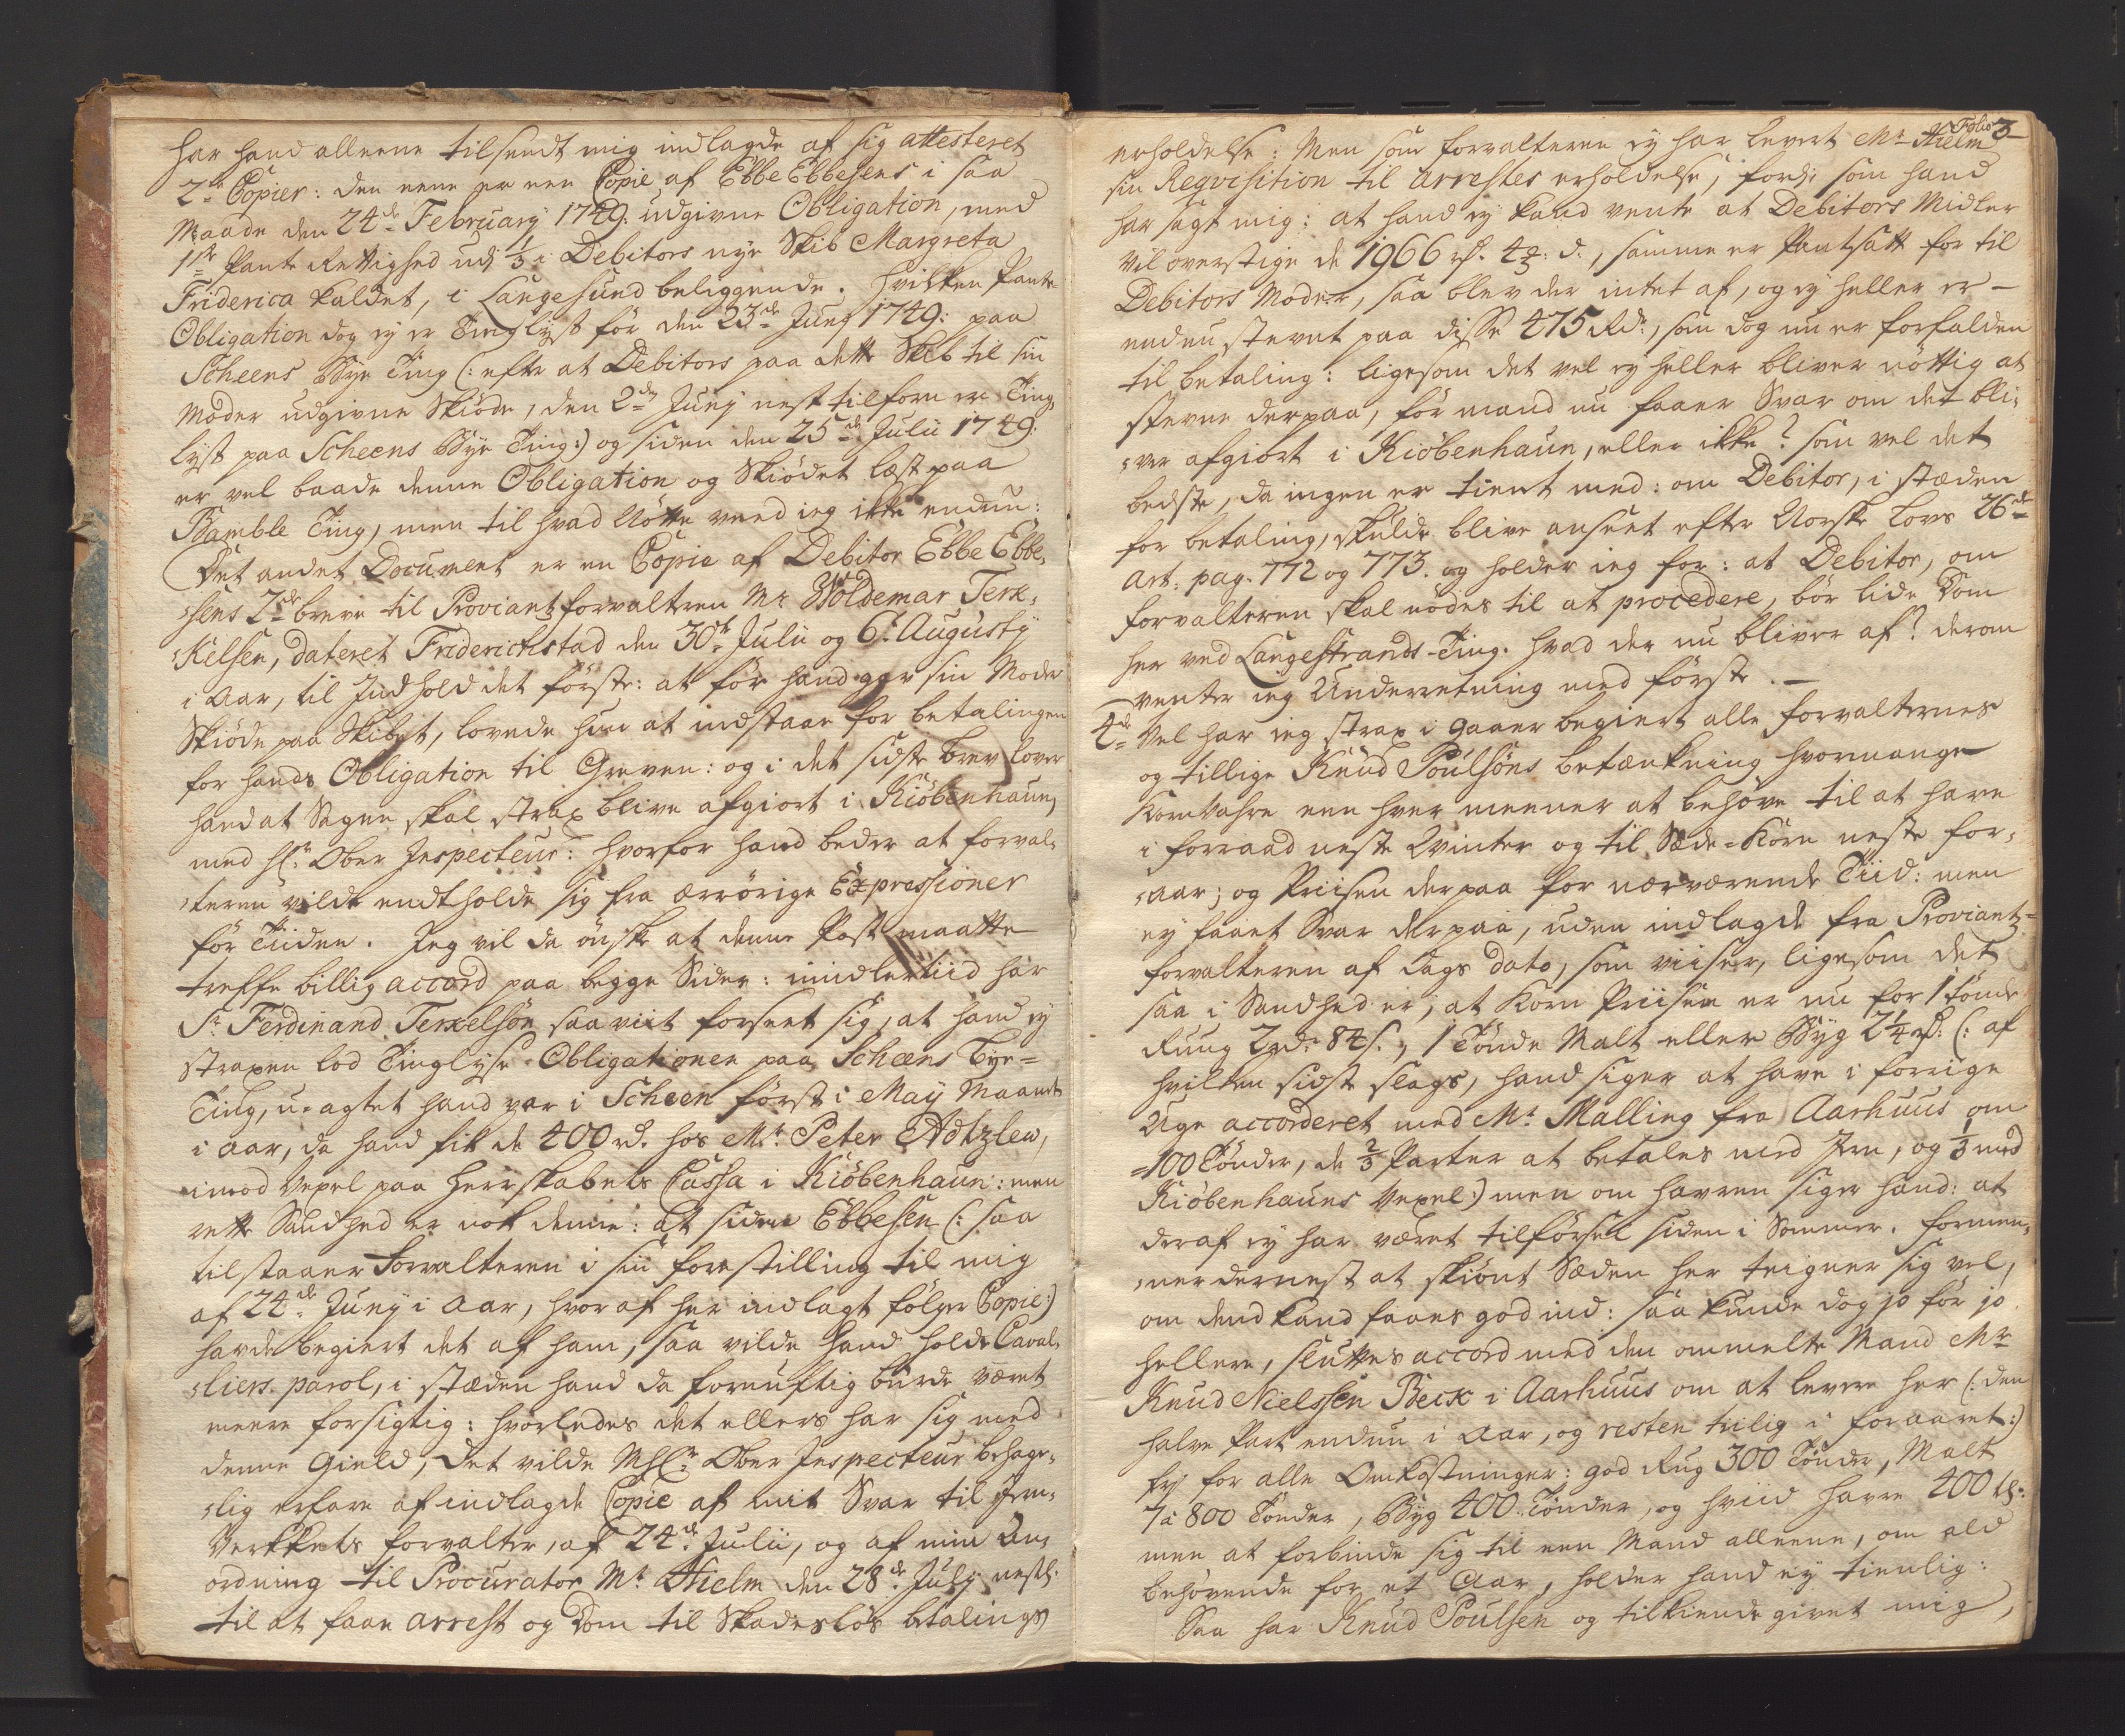 har hand alleene tilsendt mig indlagde af sig attesteret
2de Copier: den eene er een Copie af Ebbe Ebbesens i saa
Maade den 24de February 1749. udgivne Obligation, med
1ste Pante Rettighed udj 1/3 i Debitors nye Skib Margreta
Friderica kaldet, i Langesund beliggende. Hvilken Pante
Obligation dog ey er Tinglyst för den 23de Juny 1749: paa
Scheens Bye Ting (: efter at Debitors paa dette Skib til sin
Moder udgivne Skiöde, den 2den Juny nest tilforn er Ting,
lyst paa Scheens Bye Ting:) og siden den 25de Julii 1749.
er vel baade denne Obligation og Skiödet læst paa
Bamble Ting, men til hvad Nötte veed ieg ikke endnu:
Det andet Document er en Copie af Debitor Ebbe Ebbe,
,sens 2de breve til Proviantforvalteren Mr Woldemar Terk,
,kelsen, dateret Friderichstad den 30te Julii og 6te Augusty
i Aar, til Indhold det förste: at för hand gav sin Moder
Skiöde paa Skibet, lovede hun at indstaae for betalingen
for hands Obligation til Greven: og i det sidste brev lover
hand at Sagen skal strax blive afgiort i Kiöbenhaun,
med Hr Ober Inspecteur: hvorfor hand beder at forval,
,teren vilde endtholde sig fra ærrörige Expressioner
för Tiiden. Jeg vil da önske at denne Post maatte
treffe billig accord paa begge Sider: imidlertiid har
Sr Ferdinand Terkelsön saa viit forseet sig, at hand ey
straxen lod Tinglyse Obligationen paa Scheens Bye=
Ting, u-agtet hand var i Scheen först i May Maaned
i Aar, da hand fik de 400 rd. hos Mr Peter Adtzlew,
imod Vexel paa Herskabets Cassa i Kiöbenhaun: men
rette Sandhed er nok denne: at siden Ebbesen (: saa
tilstaaer Forvalteren i sin forestilling til mig
af 24de Juny i Aar, hvoraf her indlagt fölger Copie:)
havde begiert det af ham, saa vilde Hand holde Caval,
,liers parol, i stæden hand da fornuftig burde været
meere forsigtig: hvorledes det ellers har sig med
denne Gield, Det vilde MHr Ober Inspecteur behage,
,lig erfare af indlagde Copie af mit Svar til Jern,
Verkkets forvalter, af 24de Julii, og af min An,
ordning til Procurator Mr Hielm den 28de July nestl.
til at faae arrest og Dom til Skadeslös betalings
Folio 3
erholdelse: Men som forvalteren ey har levert Mr Hielm
sin Reqvisition til Arrestes erholdelse, fordj som hand
har sagt mig: at hand ey kand vente at Debitors Midler
vil overstige de 1966 rd. 4 d:, samme er Pantsatt for til
Debitors Moder, saa blev der intet af, og ey heller er -
endnu stevnt paa disse 475 Rdr, som dog nu er forfalden
til betaling: ligesom det vel ey heller bliver nöttig at
stevne derpaa, för mand nu faaer Svar om det bli,
,ver afgiort i Kiöbenhaun, eller ikke? som vel det
bedste, da ingen er tient med: om Debitor, i stæden
for betaling, skulde blive anseet efter Norske Lovs 26de
Art: pag. 772 og 773. og holder ieg for: at Debitor, om
forvalteren skal nödes til at procedere, bör lide Dom
her ved Langestrands-Ting. hvad der nu bliver af? derom
venter ieg Underretning med förste. -
4de Vel har ieg strax i Gaaer begiert alle forvalternes
og tillige Knud Poulsöns betænkning hvormange
Kornvahre een hver meener at behöve til at have
i forraad neste Vinter og til Sæde-Korn neste for,
,aar; og Priisen derpaa for nærværende Tiid: men
ey faaet Svar derpaa, uden indlagde fra Proviant=
forvalteren af Dags dato, som viiser, ligesom det
saa i Sandhed er, at Korn Priisen er nu for 1 Tönde
Rug 2 rd: 84 s., 1 Tönde Malt eller Byg 2 1/4 rd: (: af
hvilken sidst slags, hand siger at have i forrige
Uge accorderet med Mr Malling fra Aarhuus om
=100 Tönder, de 2/3 Parter at betales med Jern, og 1/3 med
Kiöbenhauns Vexel:) men om Havren siger hand: at
deraf ey har været tilförsel siden i Sommer. formee,
,ner dernest at skiönt Sæden her teigner sig vel,
om dend kand faaes god ind: saa kunde dog jo för jo
hellere, sluttes accord med den ommelte Mand Mr
Knud Nielssen Beck i Aarhuus om at levere her (: den
halve Part endnu i Aar, og resten tiilig i foraaret:)
fri for alle Omkostninger: god Rug 300 Tönder, Malt
7 à 800 Tönder, Byg 400 Tönder, og hviid Havre 400 td:
men at forbinde sig til een Mand alleene, om ald
behövende for et Aar, holder hand ey tienlig:
Saa har Knud Poulsen og tilkiende givet mig,